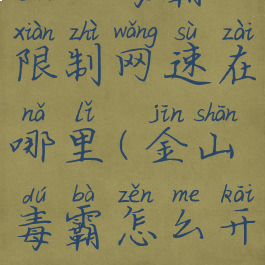 xiàn zhì wǎng sù zài
限制网速在
nǎ lǐ jīn shān
哪里(金山
dú bà zěn me kāi
毒霸怎么开